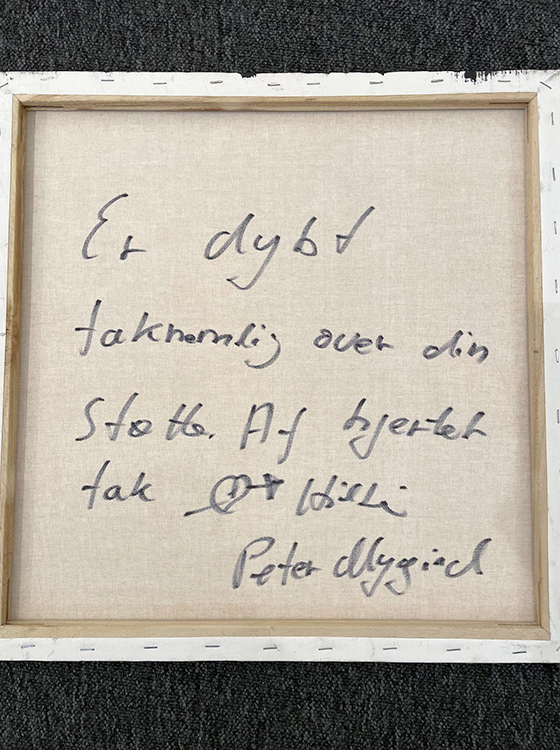 Er dybt
taknemlig over din
Støtte. Af hjertet
tak Hilli
Peter Mygind